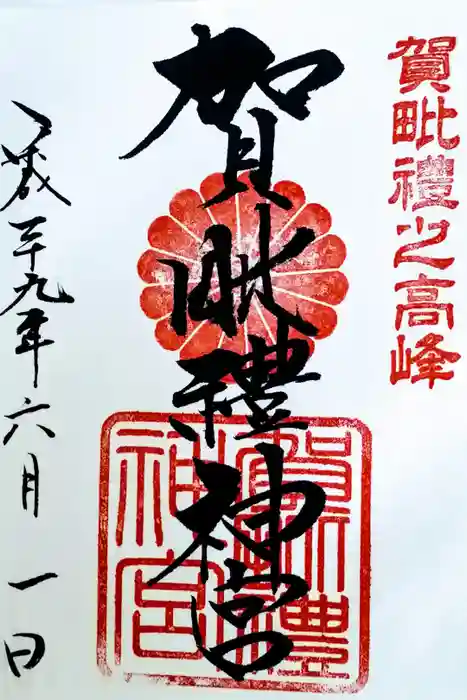 賀毗禮之高峰
賀毗禮神宮
賀毗禮神宮
平成二十九年六月一日